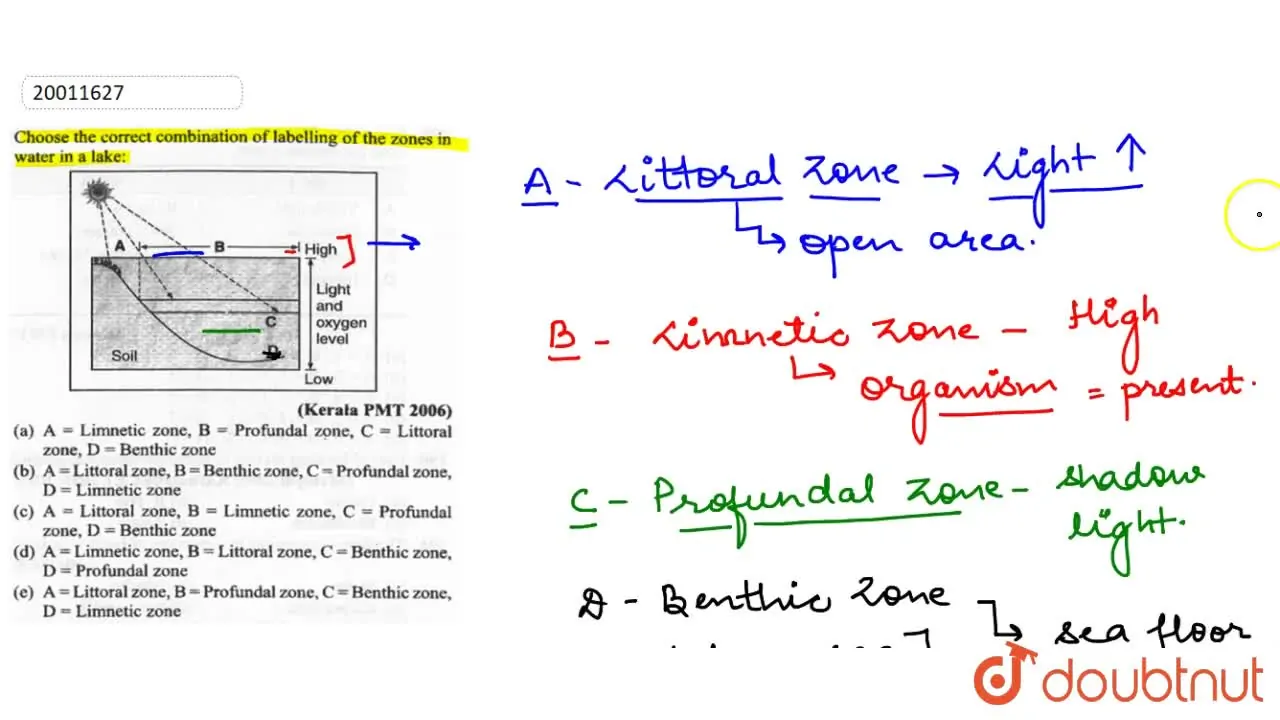 20011627
Choose the correct combination of labelling of the zones in
water in a lake:
A
B
High
Light
and
oxygen
level
C
D
Soil
Low
(Kerala PMT 2006)
(a) A = Limnetic zone, B = Profundal zone, C = Littoral
zone, D = Benthic zone
(b) A = Littoral zone, B = Benthic zone, C = Profundal zone,
D = Limnetic zone
(c) A = Littoral zone, B = Limnetic zone, C = Profundal
zone, D = Benthic zone
(d) A = Limnetic zone, B = Littoral zone, C = Benthic zone,
D = Profundal zone
(e) A = Littoral zone, B = Profundal zone, C = Benthic zone,
D = Limnetic zone
A - Littoral zone → Light ↑
open area.
B - Limnetic zone - High
organism = present.
C - Profundal zone - shadow
light.
D - Benthic zone
sea floor
doubtnut